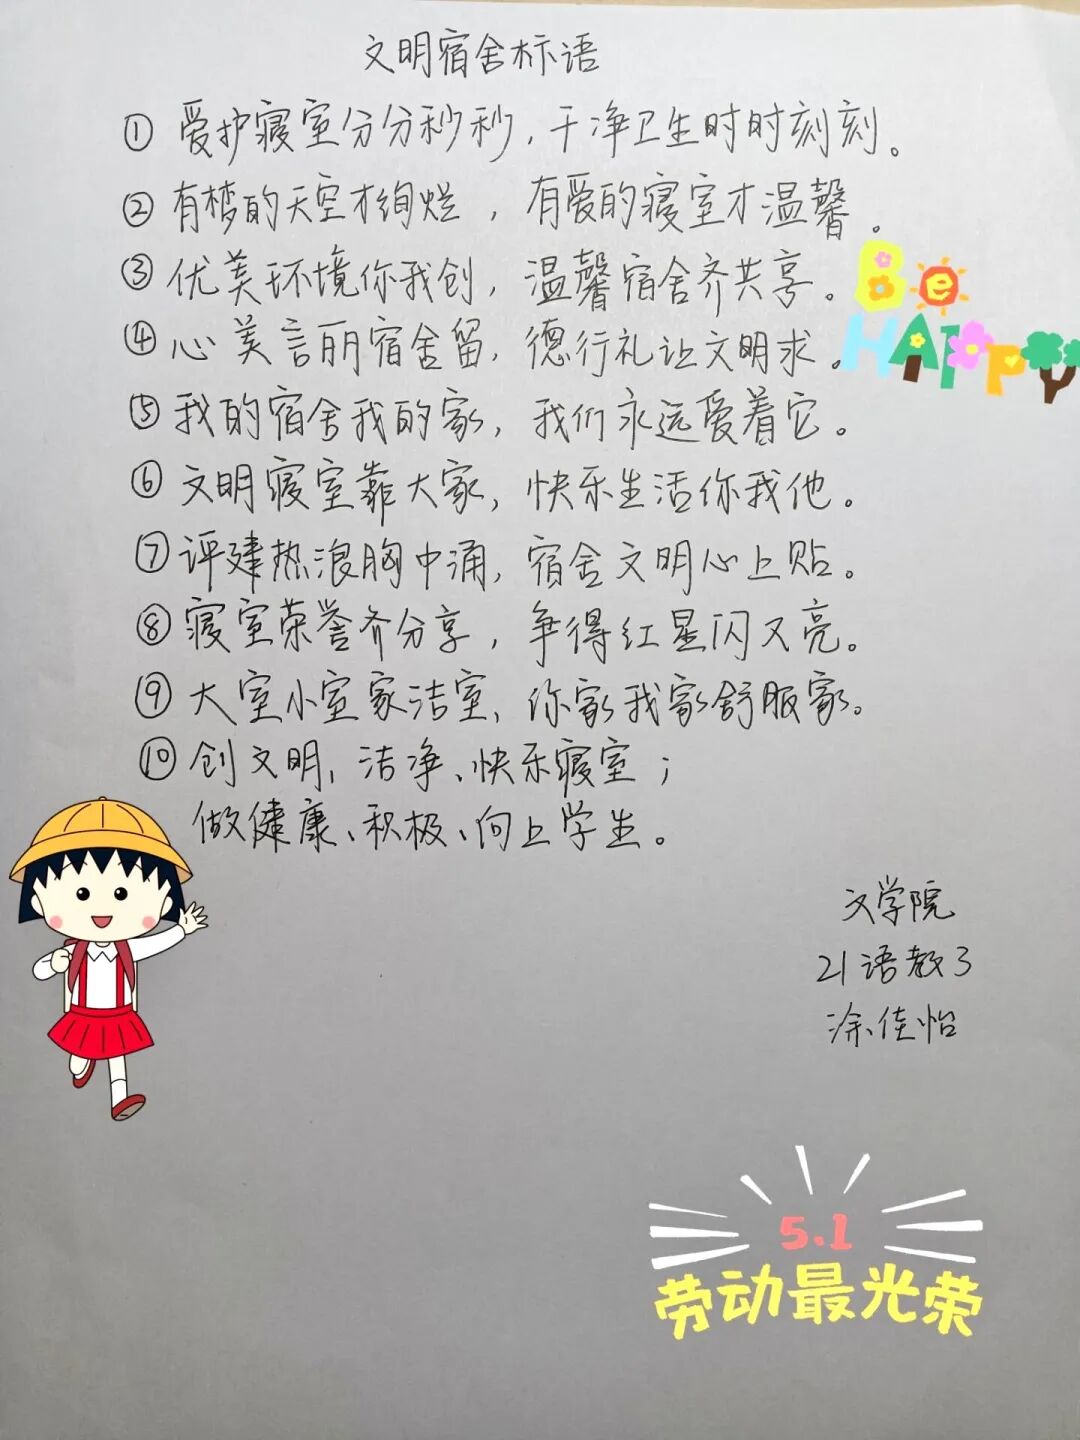 文明宿舍标语
① 爱护寝室分分秒秒，干净卫生时时刻刻。
② 有梦的天空才绚烂，有爱的寝室才温馨。
③ 优美环境你我创，温馨宿舍齐共享。
④ 心美言丽宿舍留，德行礼让文明求。
Be
HAPPY
⑤ 我的宿舍我的家，我们永远爱着它。
⑥ 文明寝室靠大家，快乐生活你我他。
⑦ 评建热浪胸中涌，宿舍文明心上贴。
⑧ 寝室荣誉齐分享，争得红星闪又亮。
⑨ 大室小室家洁室，你家我家舒服家。
⑩ 创文明、洁净、快乐寝室；
做健康、积极、向上学生。
文学院
21语教3
涂佳怡
5.1
劳动最光荣